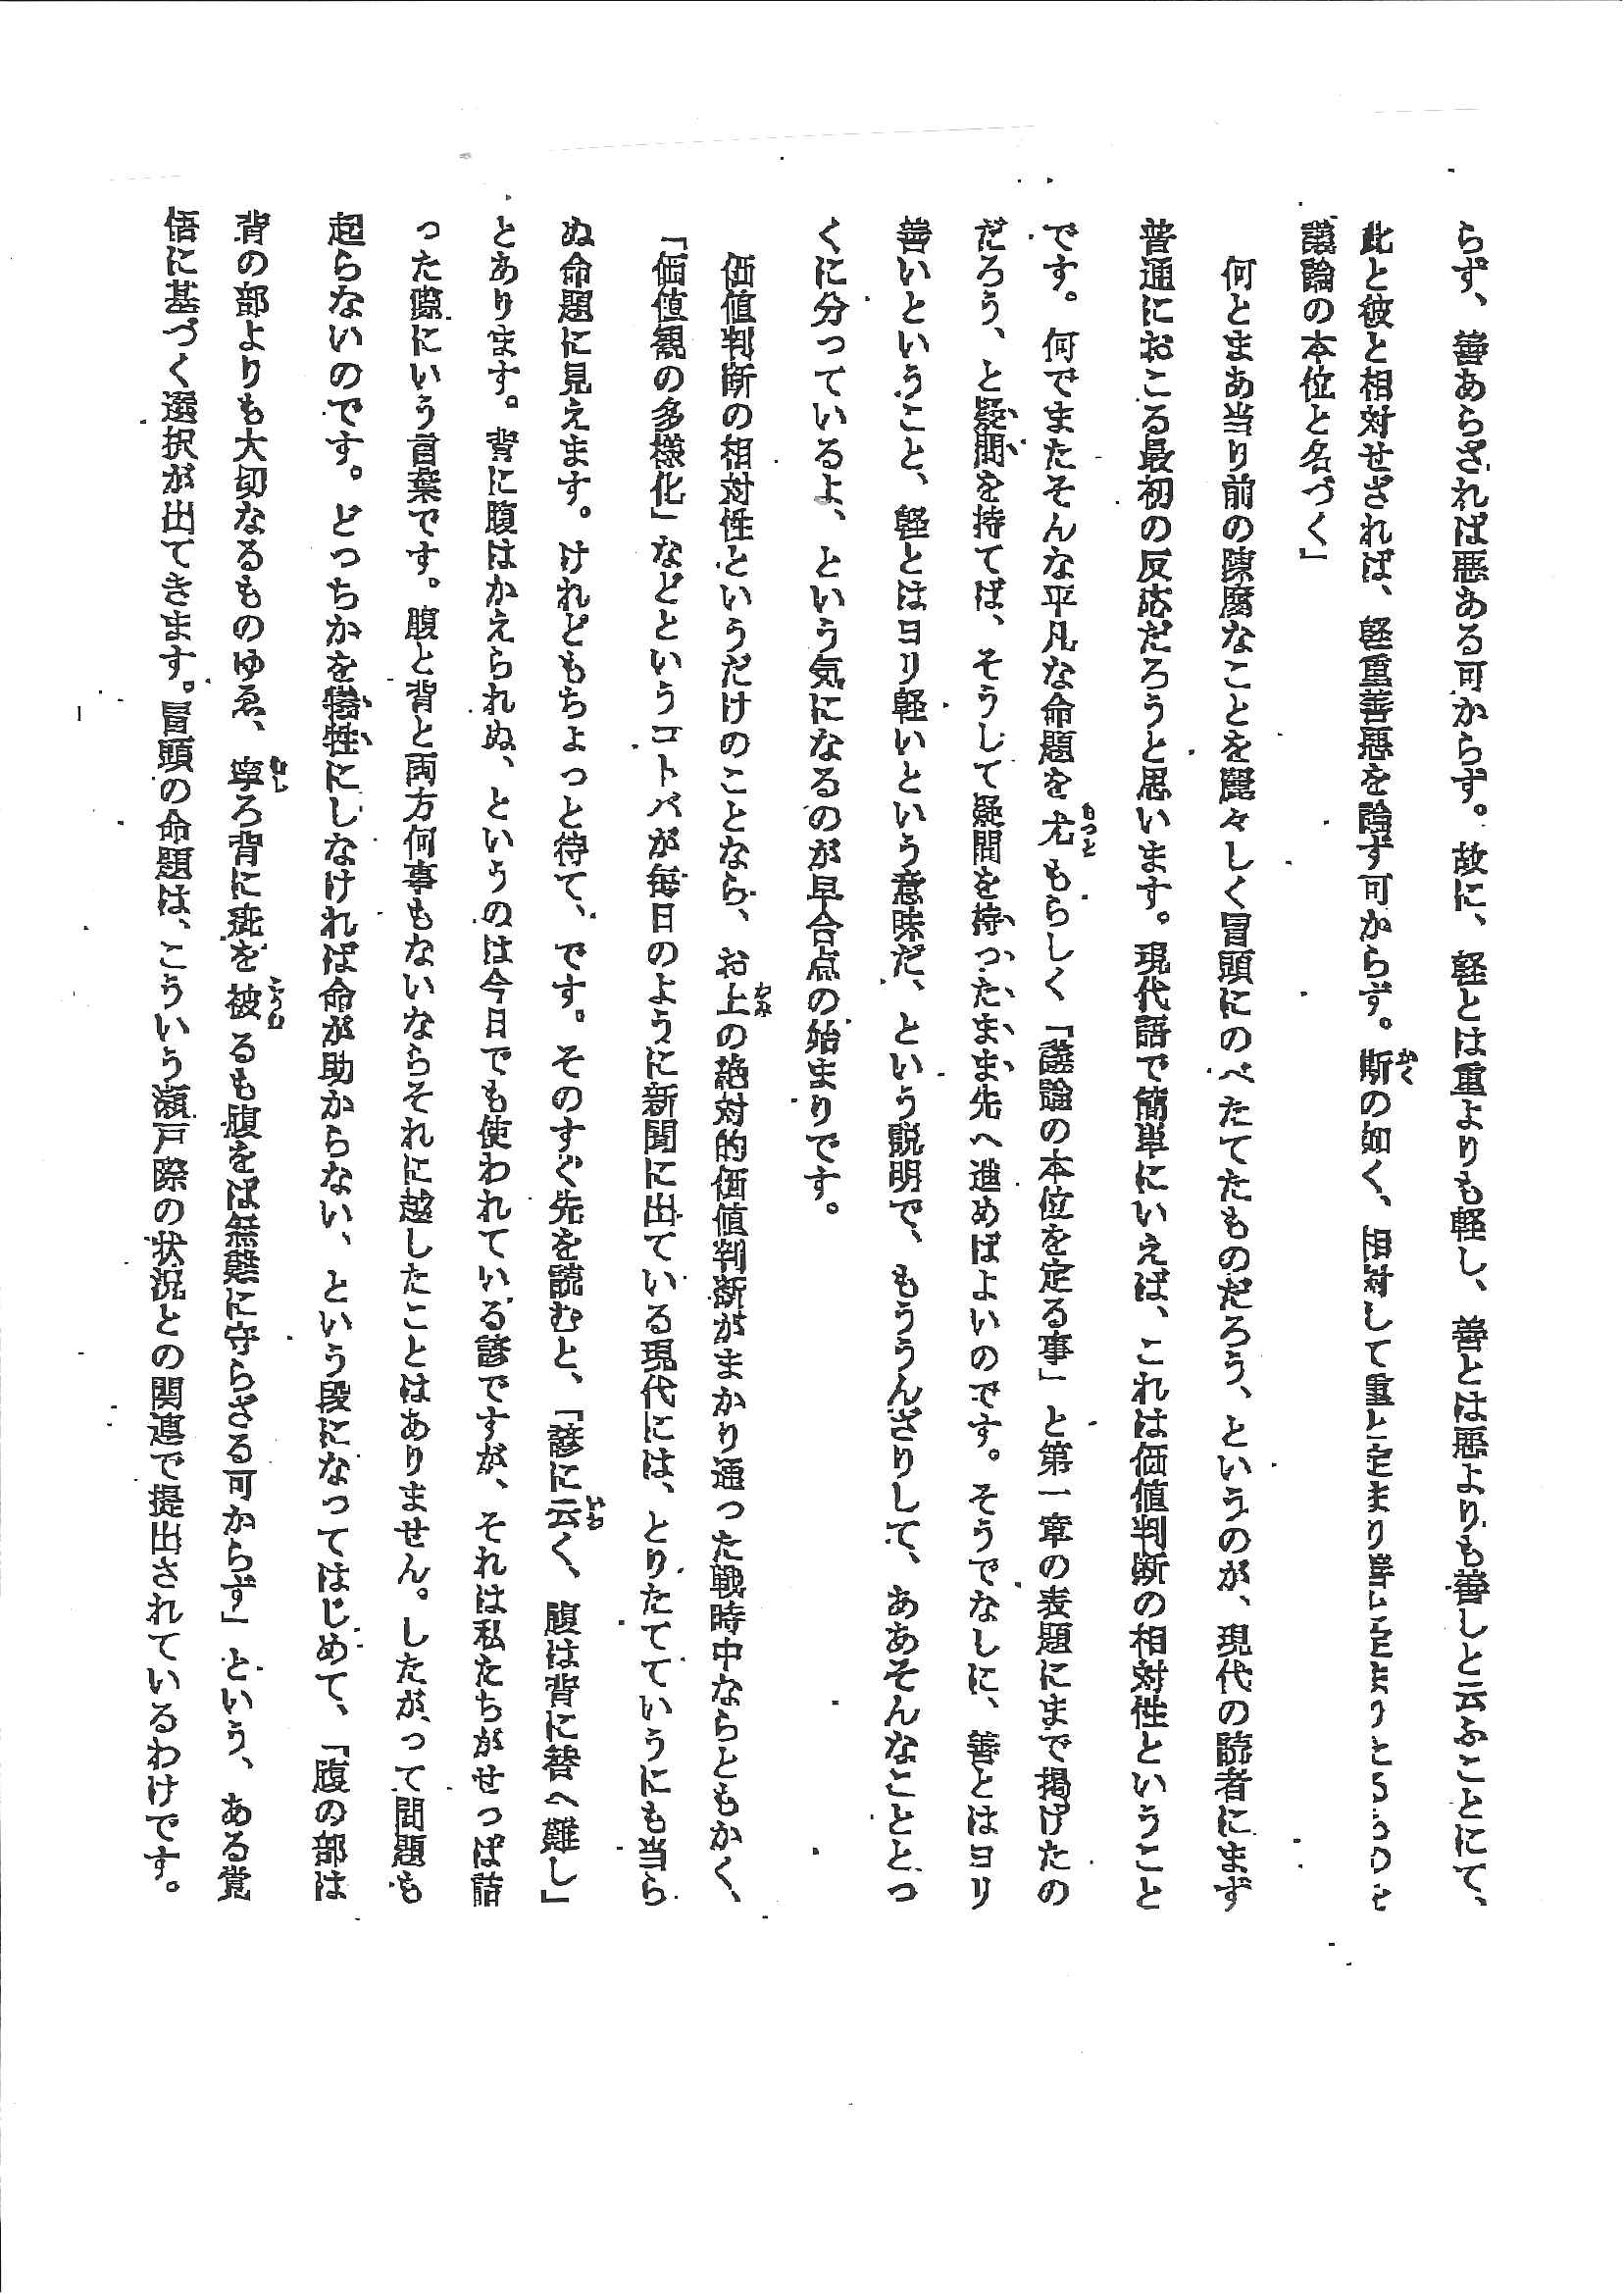 らず、善あらざれば悪ある可からず。故に、軽とは重よりも軽し、善とは悪よりも善しと云ふことにて、
此と彼と相対せざれば、軽重善悪を論ず可からず。斯の如く、相対して重と定まり善と定まりたるものを
議論の本位と名づく」
何とまあ当り前の陳腐なことを麗々しく冒頭にのべたてたものだろう、というのが、現代の読者にまず
普通におこる最初の反応だろうと思います。現代語で簡単にいえば、これは価値判断の相対性ということ
です。何でまたそんな平凡な命題を尤もらしく「議論の本位を定る事」と第一章の表題にまで掲げたの
だろう、と疑問を持てば、そうして疑問を持ったまま先へ進めばよいのです。そうでなしに、善とはヨリ
善いということ、軽とはヨリ軽いという意味だ、という説明で、もううんざりして、ああそんなこととっ
くに分っているよ、という気になるのが早合点の始まりです。
価値判断の相対性というだけのことなら、お上の絶対的価値判断がまかり通った戦時中ならともかく、
「価値観の多様化」などというコトバが毎日のように新聞に出ている現代には、とりたてていうにも当ら
ぬ命題に見えます。けれどもちょっと待て、です。そのすぐ先を読むと、「諺に云く、腹は背に替へ難し」
とあります。背に腹はかえられぬ、というのは今日でも使われている諺ですが、それは私たちがせっぱ詰
った際にいう言葉です。腹と背と両方何事もないならそれに越したことはありません。したがって問題も
起らないのです。どっちかを犠牲にしなければ命が助からない、という段になってはじめて、「腹の部は
背の部よりも大切なるものゆゑ、寧ろ背に疵を被るも腹をば無難に守らざる可からず」という、ある覚
悟に基づく選択が出てきます。冒頭の命題は、こういう瀬戸際の状況との関連で提出されているわけです。